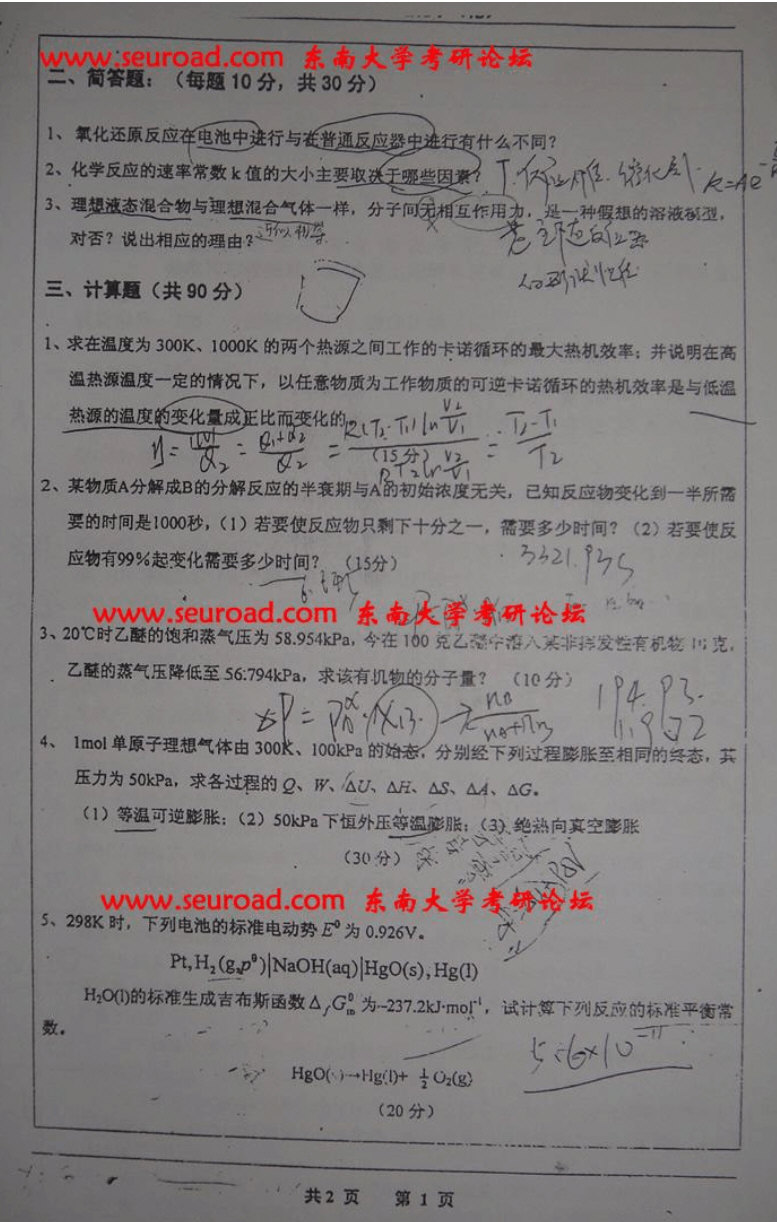 www.seuroad.com 东南大学考研论坛
二、简答题：（每题 10 分，共 30 分）
1、氧化还原反应在电池中进行与在普通反应器中进行有什么不同？
2、化学反应的速率常数 k 值的大小主要取决于哪些因素？
3、理想液态混合物与理想混合气体一样，分子间无相互作用力，是一种假想的溶液模型，
对否？说出相应的理由？
三、计算题（共 90 分）
1、求在温度为 300K、1000K 的两个热源之间工作的卡诺循环的最大热机效率；并说明在高
温热源温度一定的情况下，以任意物质为工作物质的可逆卡诺循环的热机效率是与低温
热源的温度的变化量成正比而变化的。
（15 分）
2、某物质A分解成B的分解反应的半衰期与A的初始浓度无关，已知反应物变化到一半所需
要的时间是1000秒，（1）若要使反应物只剩下十分之一，需要多少时间？（2）若要使反
应物有99％起变化需要多少时间？ （15分）
3321.93S
www.seuroad.com 东南大学考研论坛
3、20℃时乙醚的饱和蒸气压为 58.954kPa，今在 100 克乙醚中溶入某非挥发性有机物 10 克，
乙醚的蒸气压降低至 56.794kPa，求该有机物的分子量？ （10 分）
194.93.
4、 1mol 单原子理想气体由 300K、100kPa 的始态，分别经下列过程膨胀至相同的终态，其
压力为 50kPa，求各过程的 Q、W、ΔU、ΔH、ΔS、ΔA、ΔG。
（1）等温可逆膨胀；（2）50kPa 下恒外压等温膨胀；（3）绝热向真空膨胀
（30 分）
www.seuroad.com 东南大学考研论坛
5、298K 时，下列电池的标准电动势 E⁰ 为 0.926V。
Pt,H₂(g,p⁰)|NaOH(aq)|HgO(s),Hg(l)
H₂O(l)的标准生成吉布斯函数 Δ_fG⁰_m 为-237.2kJ·mol⁻¹，试计算下列反应的标准平衡常
数。
5.6×10⁻¹¹
HgO(s)→Hg(l)+ ½ O₂(g)
（20 分）
共 2 页 第 1 页